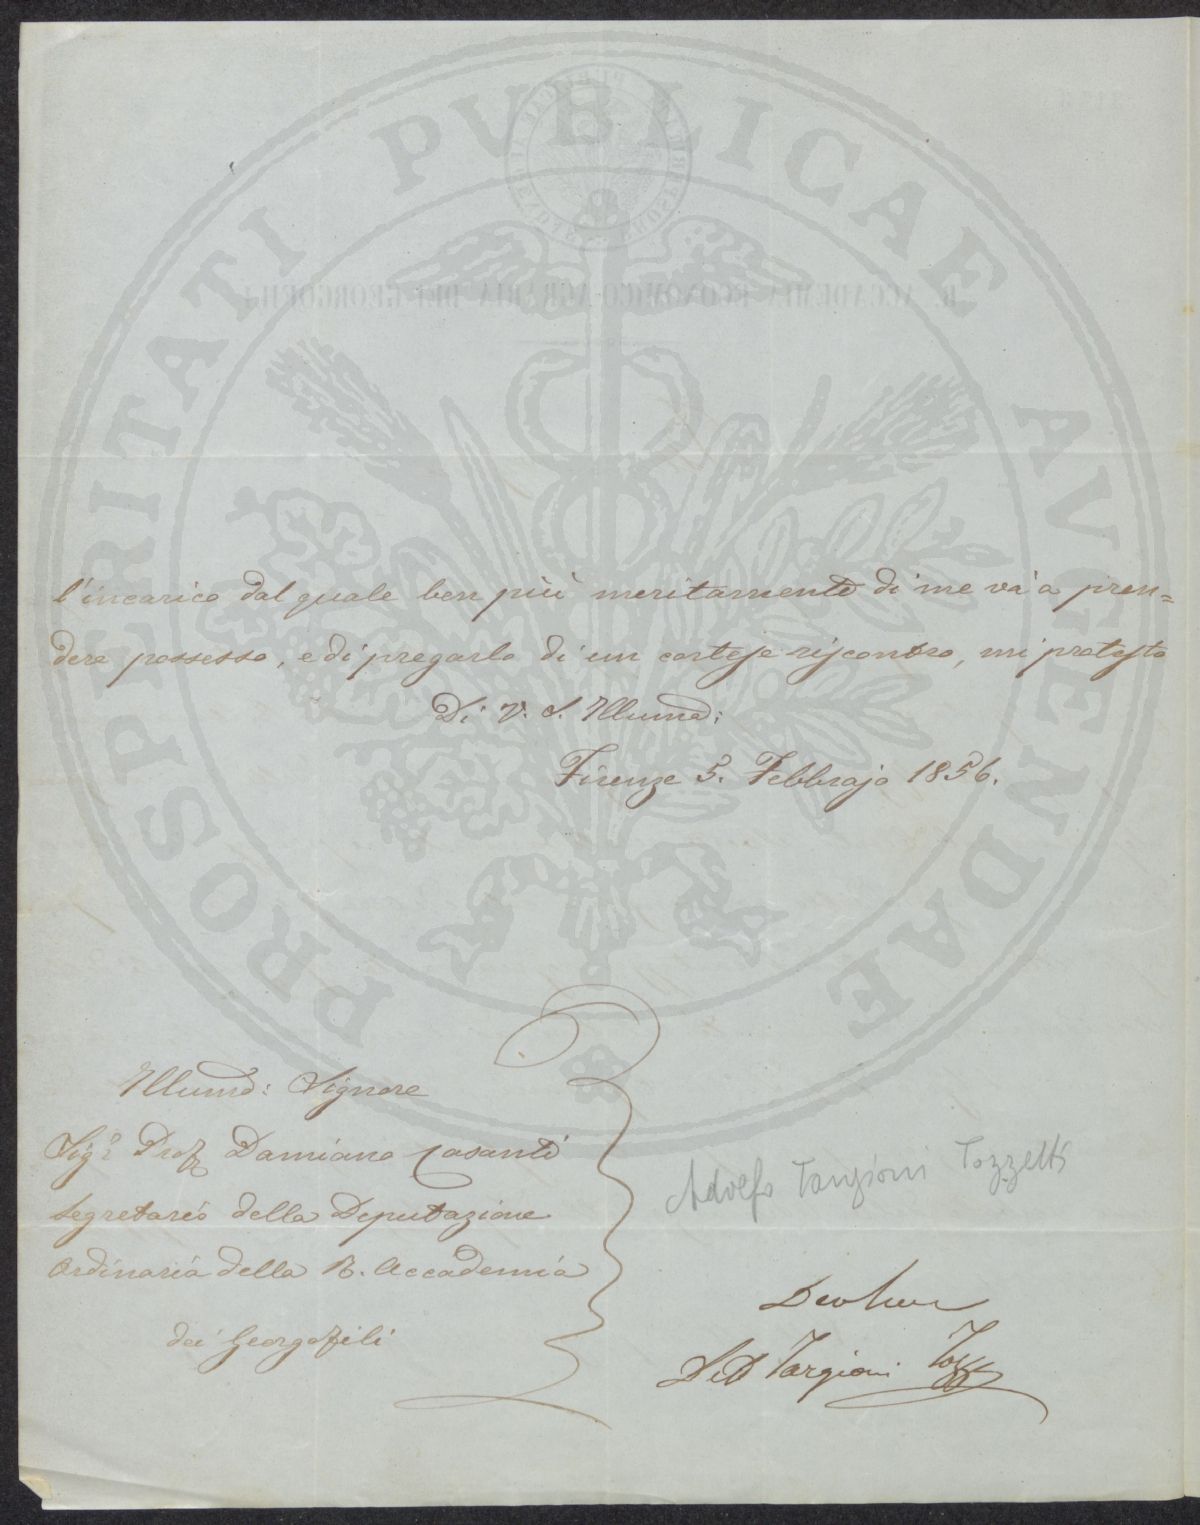 PROSPERITATI PVBLICAE AVGENDAE
R. ACCADEMIA ECONOMICO-AGRARIA DEI GEORGOFILI
l'incarico dal quale ben più meritamente di me và a pren=
dere possesso, e di pregarla di un cortese riscontro, mi protesto
Di V. S. Illuma:
Firenze 5. Febbrajo 1856.
Illumo: Signore
Sigr. Prof. Damiano Casanti
Segretario della Deputazione
Ordinaria della R. Accademia
dei Georgofili
Adolfo Targioni Tozzetti
Devo
Targioni Tozz